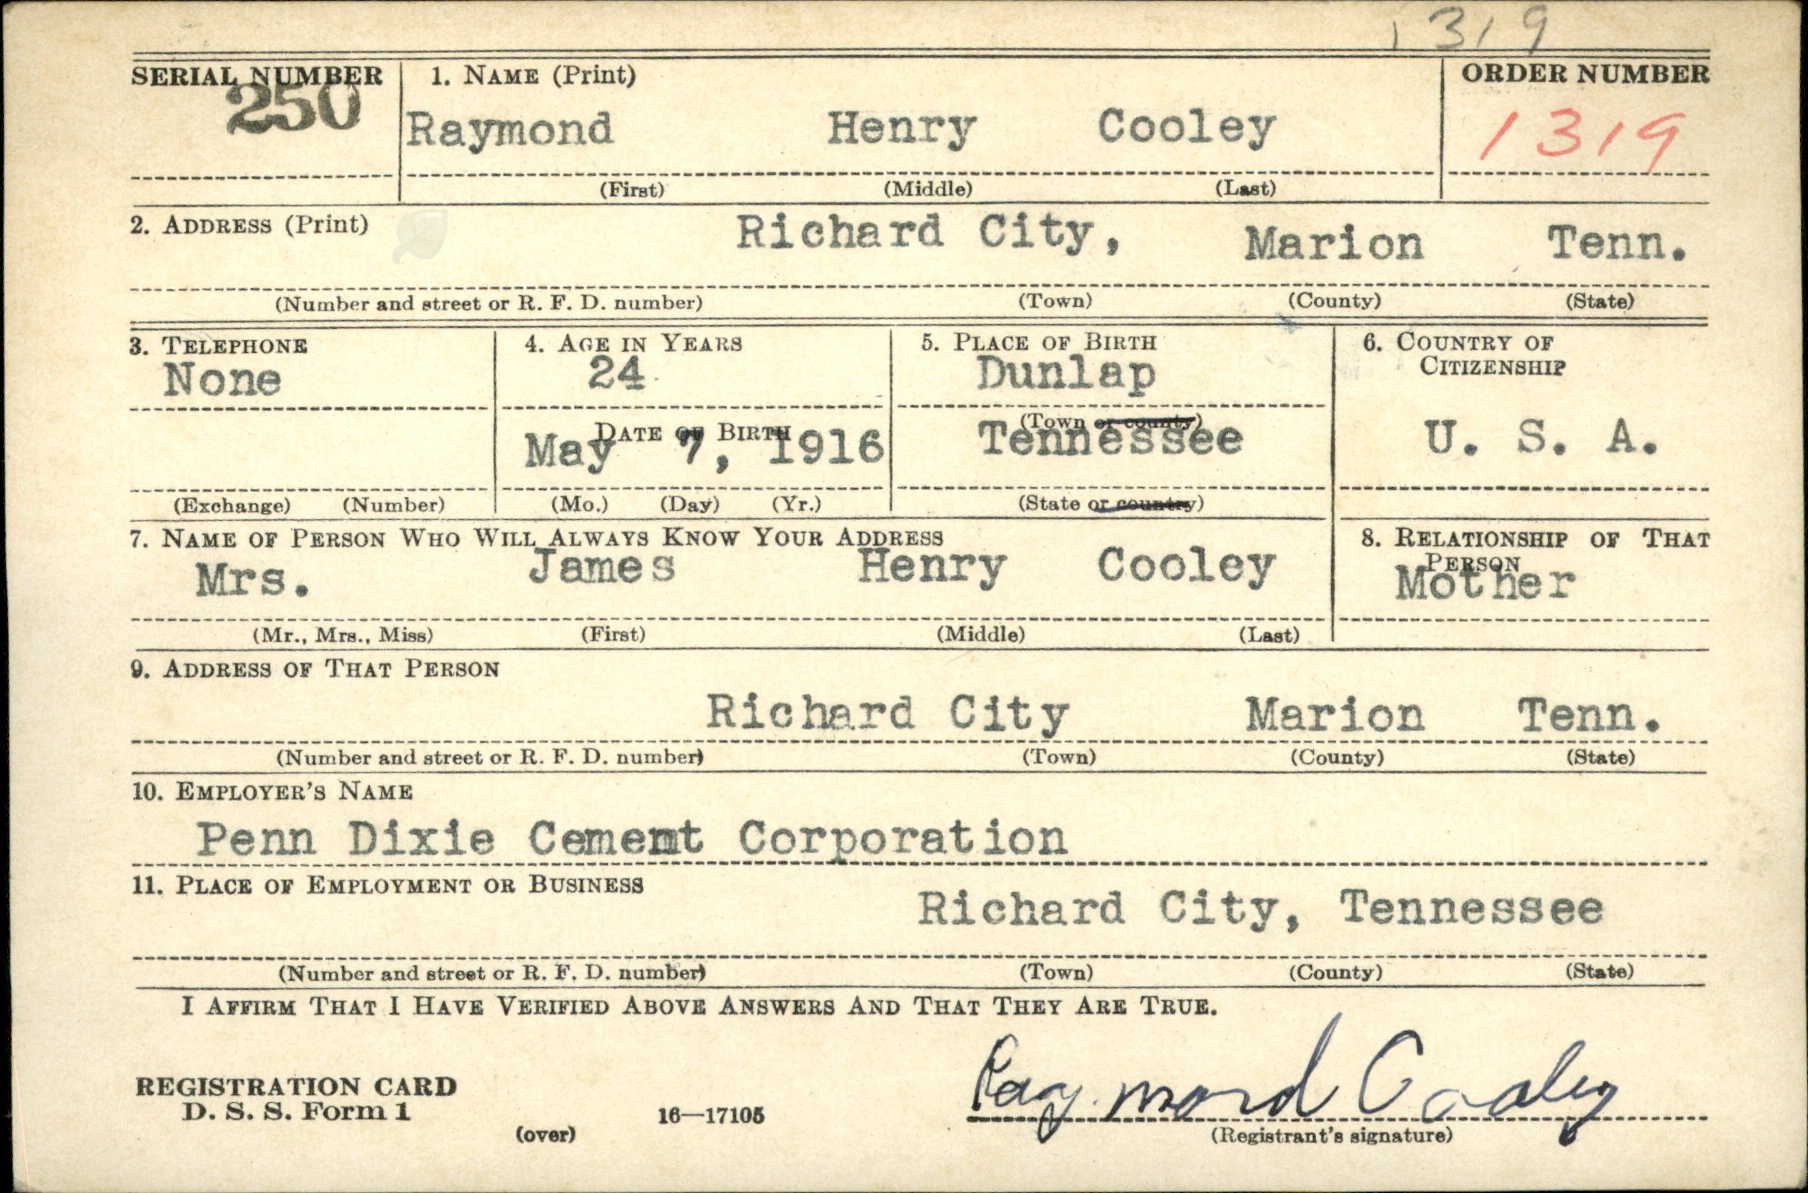 1319
SERIAL NUMBER 1. NAME (Print) ORDER NUMBER
250 Raymond Henry Cooley 1319
(First) (Middle) (Last)
2. ADDRESS (Print)
Richard City, Marion Tenn.
(Number and street or R. F. D. number) (Town) (County) (State)
3. TELEPHONE 4. AGE IN YEARS 5. PLACE OF BIRTH 6. COUNTRY OF CITIZENSHIP
None 24 Dunlap
DATE OF BIRTH (Town or county)
May 7, 1916 Tennessee U. S. A.
(Exchange) (Number) (Mo.) (Day) (Yr.) (State or country)
7. NAME OF PERSON WHO WILL ALWAYS KNOW YOUR ADDRESS 8. RELATIONSHIP OF THAT PERSON
Mrs. James Henry Cooley Mother
(Mr., Mrs., Miss) (First) (Middle) (Last)
9. ADDRESS OF THAT PERSON
Richard City Marion Tenn.
(Number and street or R. F. D. number) (Town) (County) (State)
10. EMPLOYER'S NAME
Penn Dixie Cement Corporation
11. PLACE OF EMPLOYMENT OR BUSINESS
Richard City, Tennessee
(Number and street or R. F. D. number) (Town) (County) (State)
I AFFIRM THAT I HAVE VERIFIED ABOVE ANSWERS AND THAT THEY ARE TRUE.
REGISTRATION CARD
D. S. S. Form 1
(over) 16—17105
Raymond Cooley
(Registrant's signature)